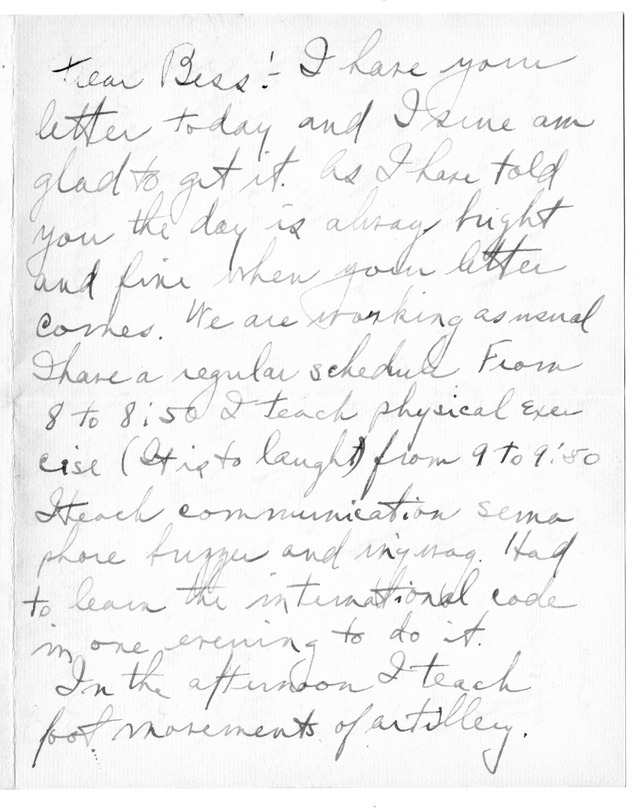 Dear Bess:- I have your
letter today and I sure am
glad to get it. As I have told
you the day is always bright
and fine when your letter
comes. We are working as usual
I have a regular schedule From
8 to 8:50 I teach physical exer
cise (It is to laugh) from 9 to 9:50
I teach communication sema
phore buzzer and wigwag. Had
to learn the international code
in one evening to do it.
In the afternoon I teach
foot movements of artillery.